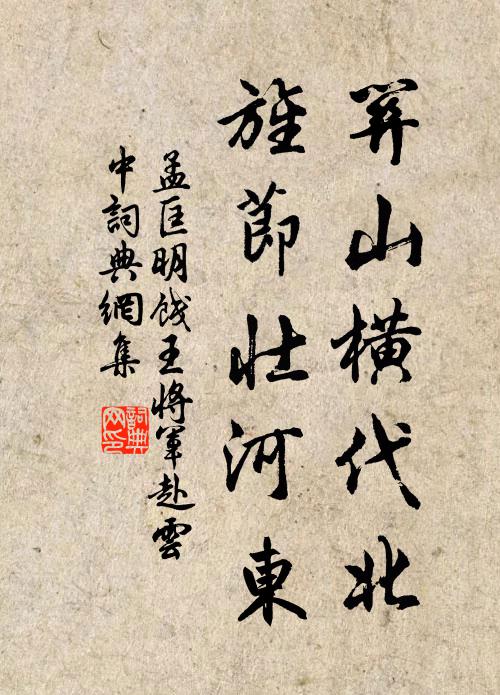 笄山橫代北
旌節壯河東
孟匡明餞王將軍赴雲
中詞典網集
詞典
网印